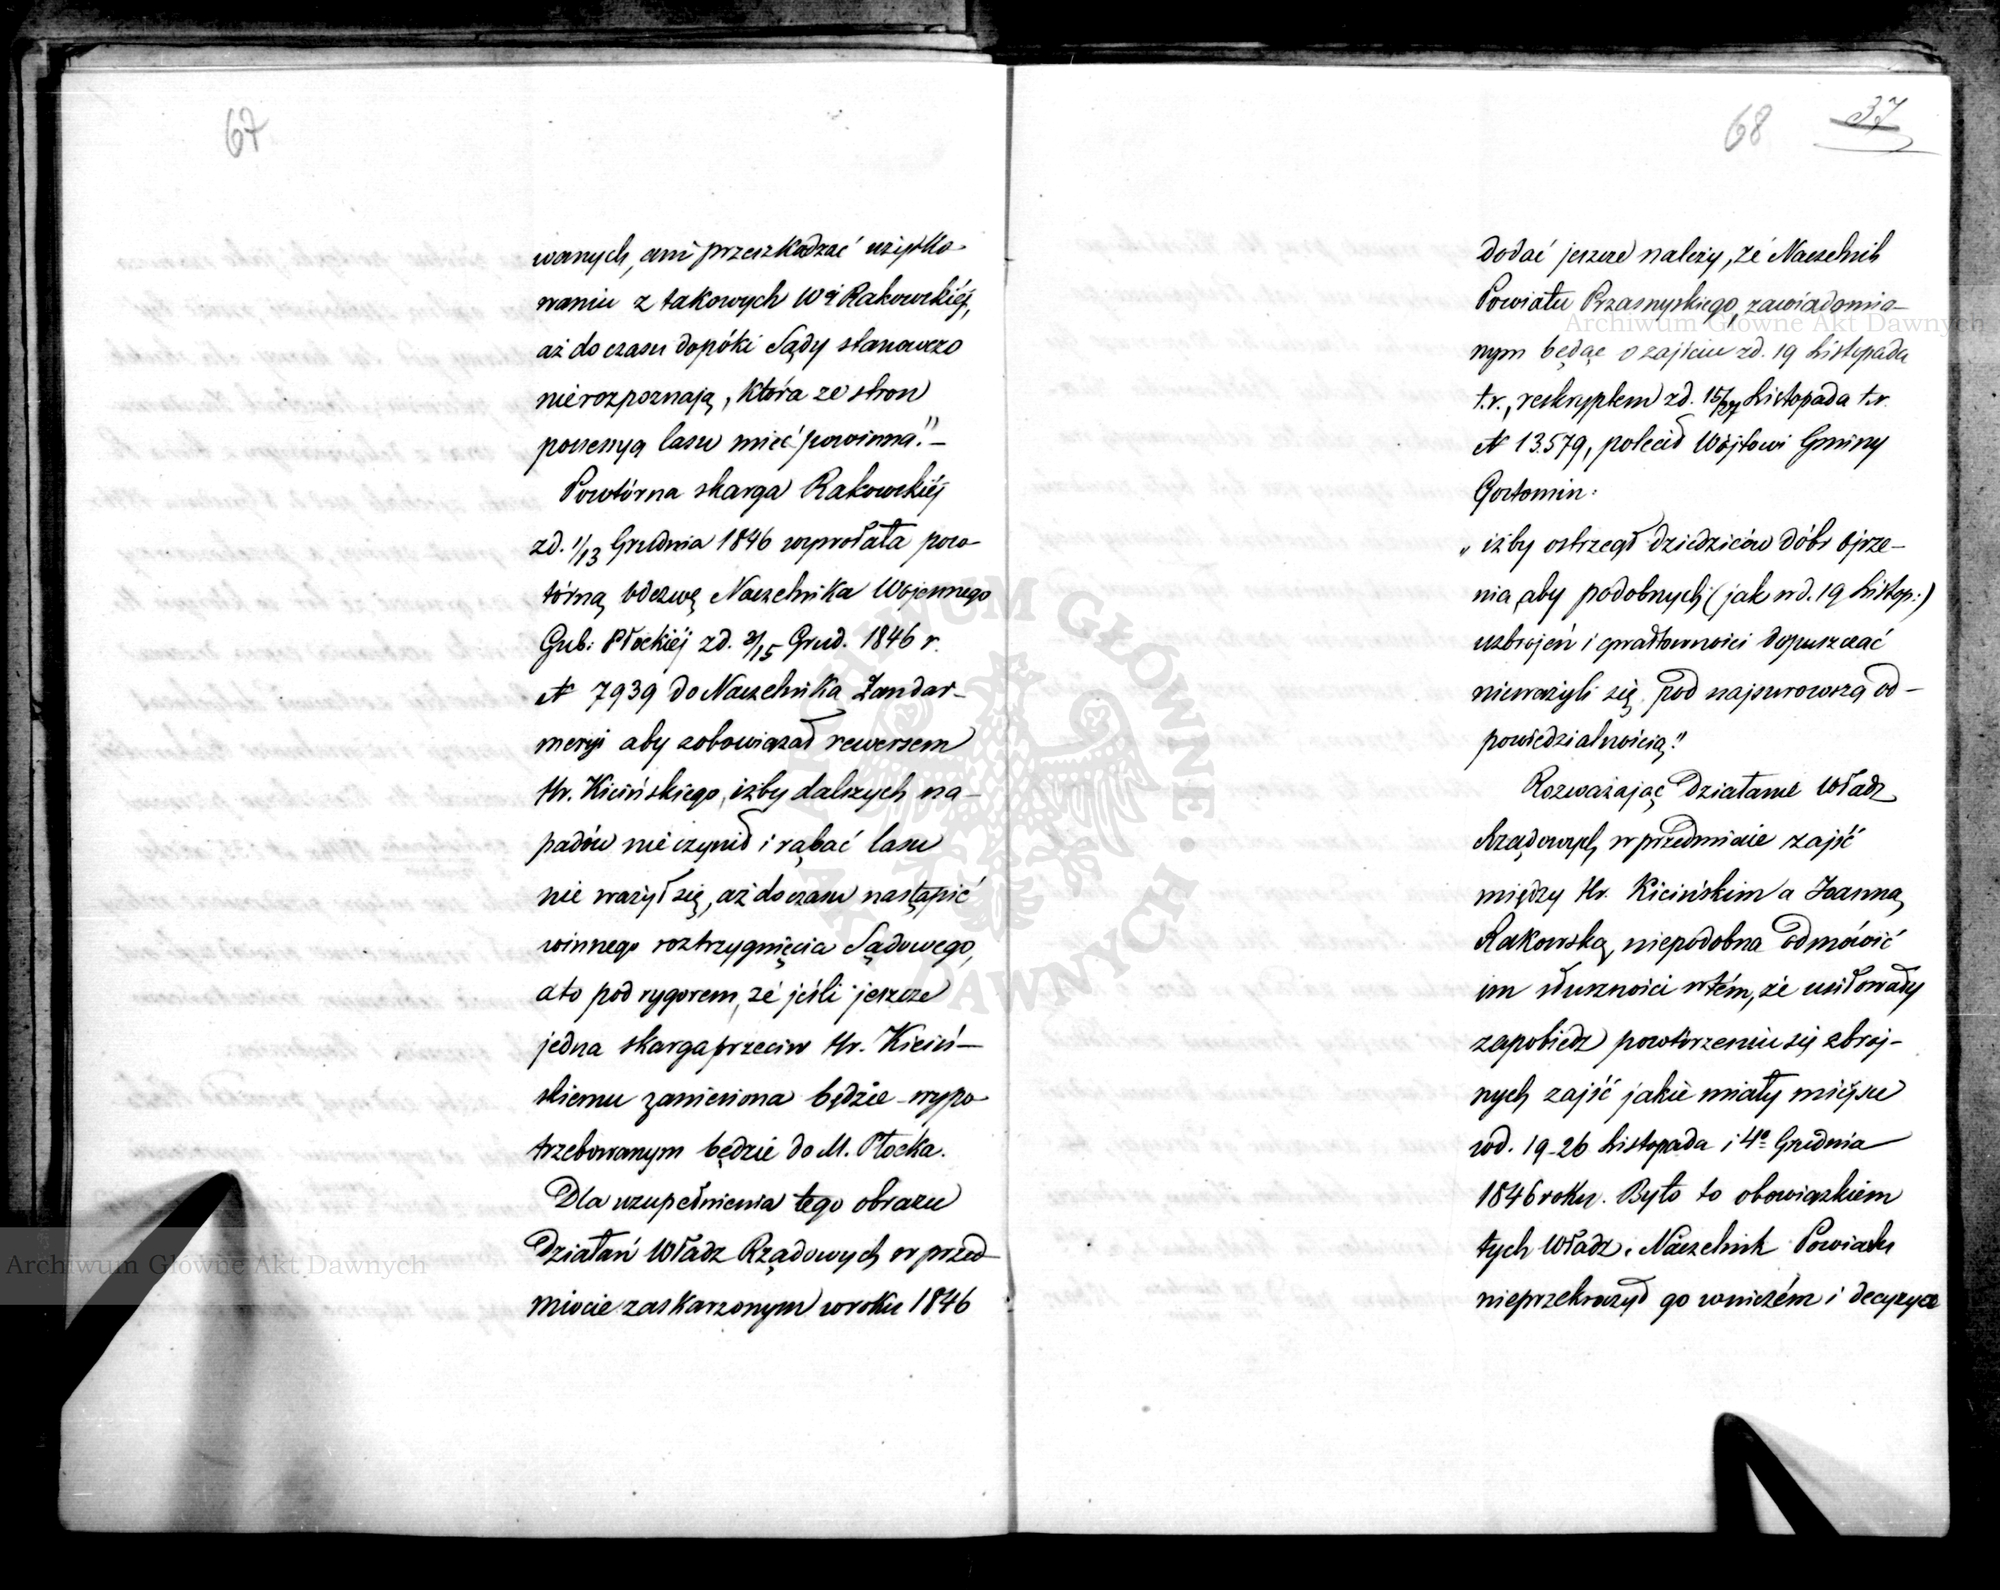 67
wanych, ani przeszkadzać użytko-
waniu z takowych Wéj Rakowskiéj,
aż do czasu dopóki Sądy stanowczo
nierozpoznają, która ze stron
possessyą lasu mieć powinna."-
Powtórna skarga Rakowskiéj
zd. 1/13 Grudnia 1846 wywołała pow-
tórną odezwę Naczelnika Wojennego
Gub: Płockiéj zd. 3/15 Grud. 1846 r.
N 7939 do Naczelnika Żandar-
meryi aby zobowiązał rewersem
Hr. Kicińskiego, iżby dalszych na-
padów nie czynił i rąbać lasu
nie ważył się, aż do czasu nastąpić
winnego roztrzygnięcia Sądowego,
a to pod rygorem, że jeśli jeszcze
jedna skarga przeciw Hr. Kiciń-
skiemu zaniesiona będzie wypo-
trzebowanym będzie do M. Płocka.
Dla uzupełnienia tego obrazu
Działań Władz Rządowych w przed-
miocie zaskarzonym w roku 1846
68 37
dodać jeszcze należy, że Naczelnik
Powiatu Przasnyskiego, zawiadomio-
nym będąc o zajściu zd. 19 Listopada
t.r., reskryptem zd. 15/27 Listopada t.r.
N 13.579, polecił Wójtowi Gminy
Gostomin:
„ iżby ostrzegł dziedziców dóbr Ojrze-
nia, aby podobnych (jak w d. 19 Listop:)
uzbrojeń i gwałtowności dopuszczać
nieważyli się pod najsurowszą od-
powiedzialnością."
Rozważając Działanie Władz
Rządowych w przedmiocie zajść
między Hr. Kicińskim a Joanną
Rakowską, niepodobna odmówić
im słuszności w tém, że usiłowały
zapobiedz powtorzeniu się zbroj-
nych zajść jakie miały miéjsce
w d. 19-26 Listopada i 4o Grudnia
1846 roku. Było to obowiązkiem
tych Władz i Naczelnik Powiatu
nieprzekroczył go w niczém i decyzye
Archiwum Główne Akt Dawnych
Archiwum Główne Akt Dawnych
ARCHIWUM GŁÓWNE • AKT DAWNYCH •